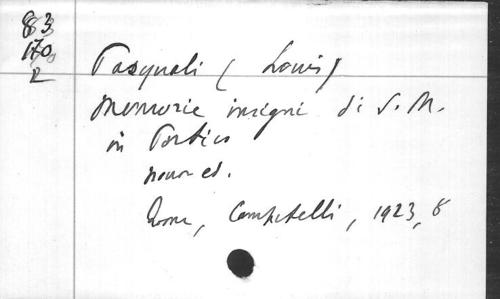 83
170
R
Pasquali (Louis)
Memorie insigni di S. M.
in Portico
nouv ed.
Rome, Campitelli, 1923, 8